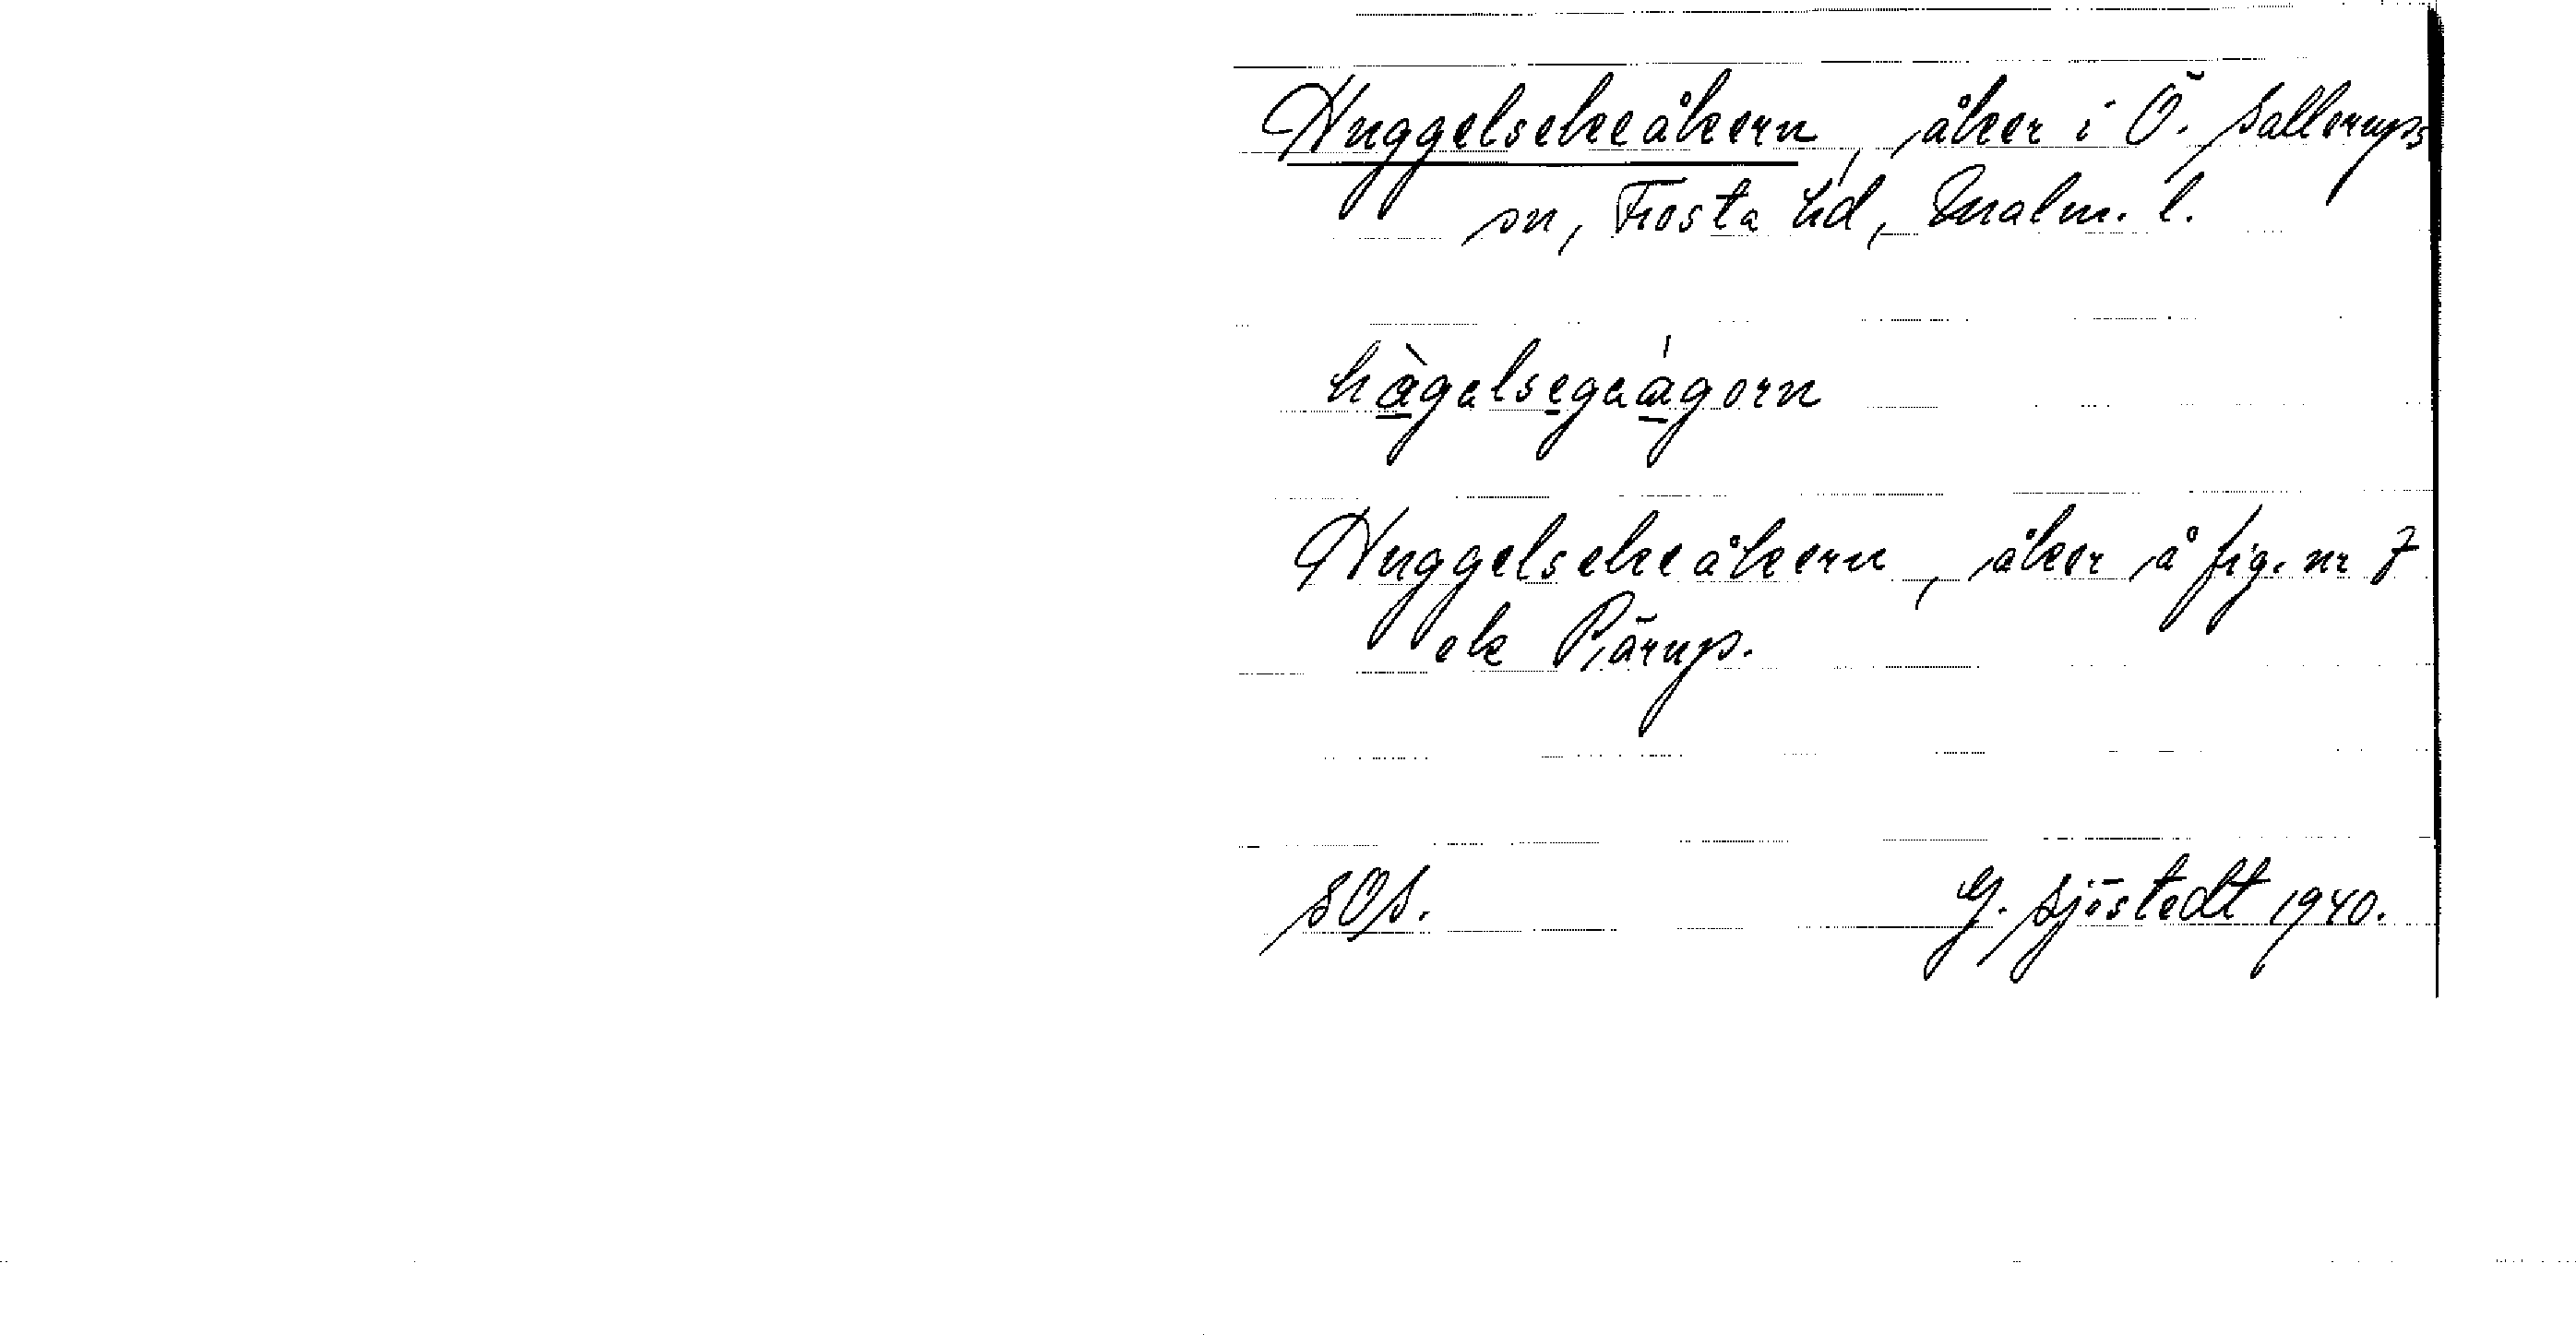 Huggelsekeåkern, åker i Ö. Sallerups
sn, Frosta hd, Malm. l.
hàgelsegeágorn
Huggelsekeåkern, åker å fig. nr 7
ek Pärup.
SOS.
G. Sjöstedt 1940.